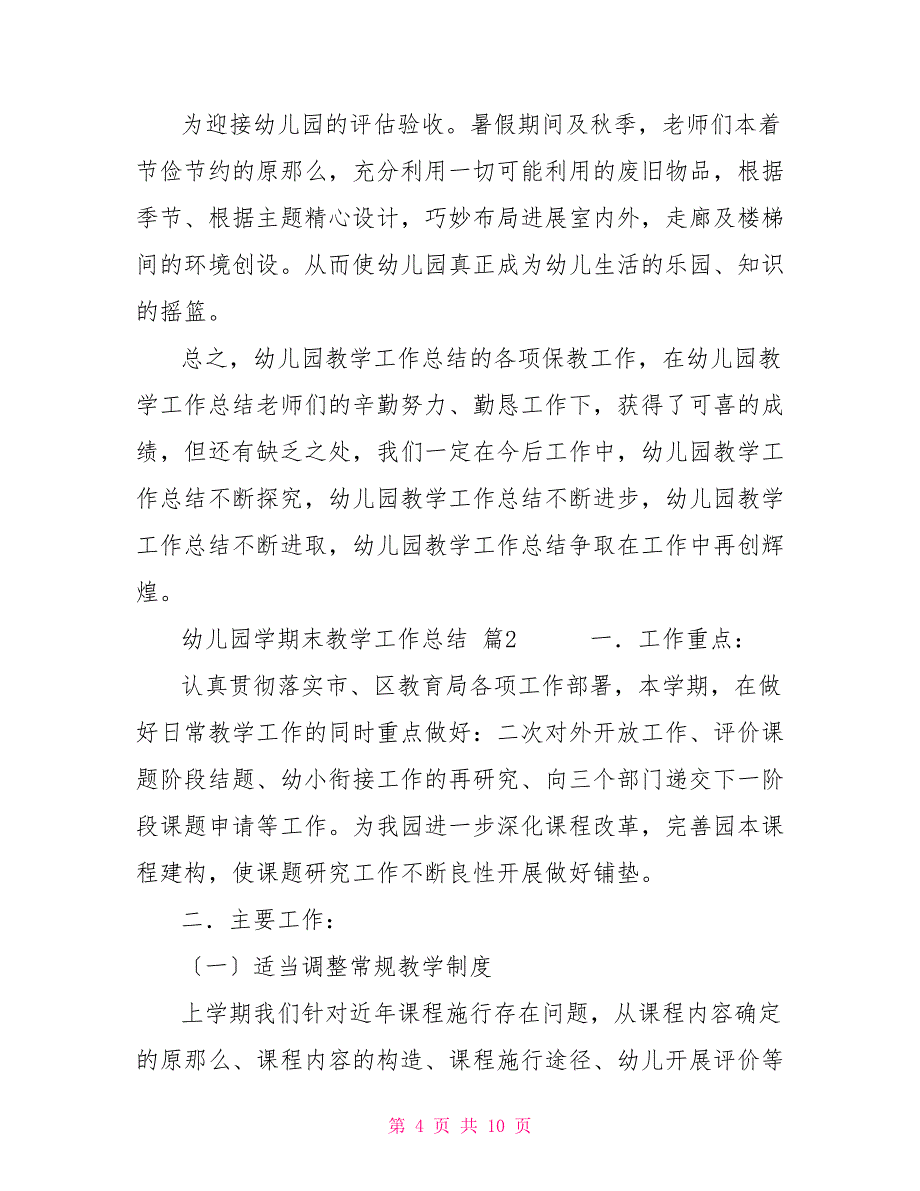 为迎接幼儿园的评估验收。暑假期间及秋季，老师们本着
节俭节约的原那么，充分利用一切可能利用的废旧物品，根据
季节、根据主题精心设计，巧妙布局进展室内外，走廊及楼梯
间的环境创设。从而使幼儿园真正成为幼儿生活的乐园、知识
的摇篮。
总之，幼儿园教学工作总结的各项保教工作，在幼儿园教
学工作总结老师们的辛勤努力、勤恳工作下，获得了可喜的成
绩，但还有缺乏之处，我们一定在今后工作中，幼儿园教学工
作总结不断探究，幼儿园教学工作总结不断进步，幼儿园教学
工作总结不断进取，幼儿园教学工作总结争取在工作中再创辉
煌。
幼儿园学期末教学工作总结 篇2 一．工作重点：
认真贯彻落实市、区教育局各项工作部署，本学期，在做
好日常教学工作的同时重点做好：二次对外开放工作、评价课
题阶段结题、幼小衔接工作的再研究、向三个部门递交下一阶
段课题申请等工作。为我园进一步深化课程改革，完善园本课
程建构，使课题研究工作不断良性开展做好铺垫。
二．主要工作：
〔一〕适当调整常规教学制度
上学期我们针对近年课程施行存在问题，从课程内容确定
的原那么、课程内容的构造、课程施行途径、幼儿开展评价等
第 4 页 共 10 页